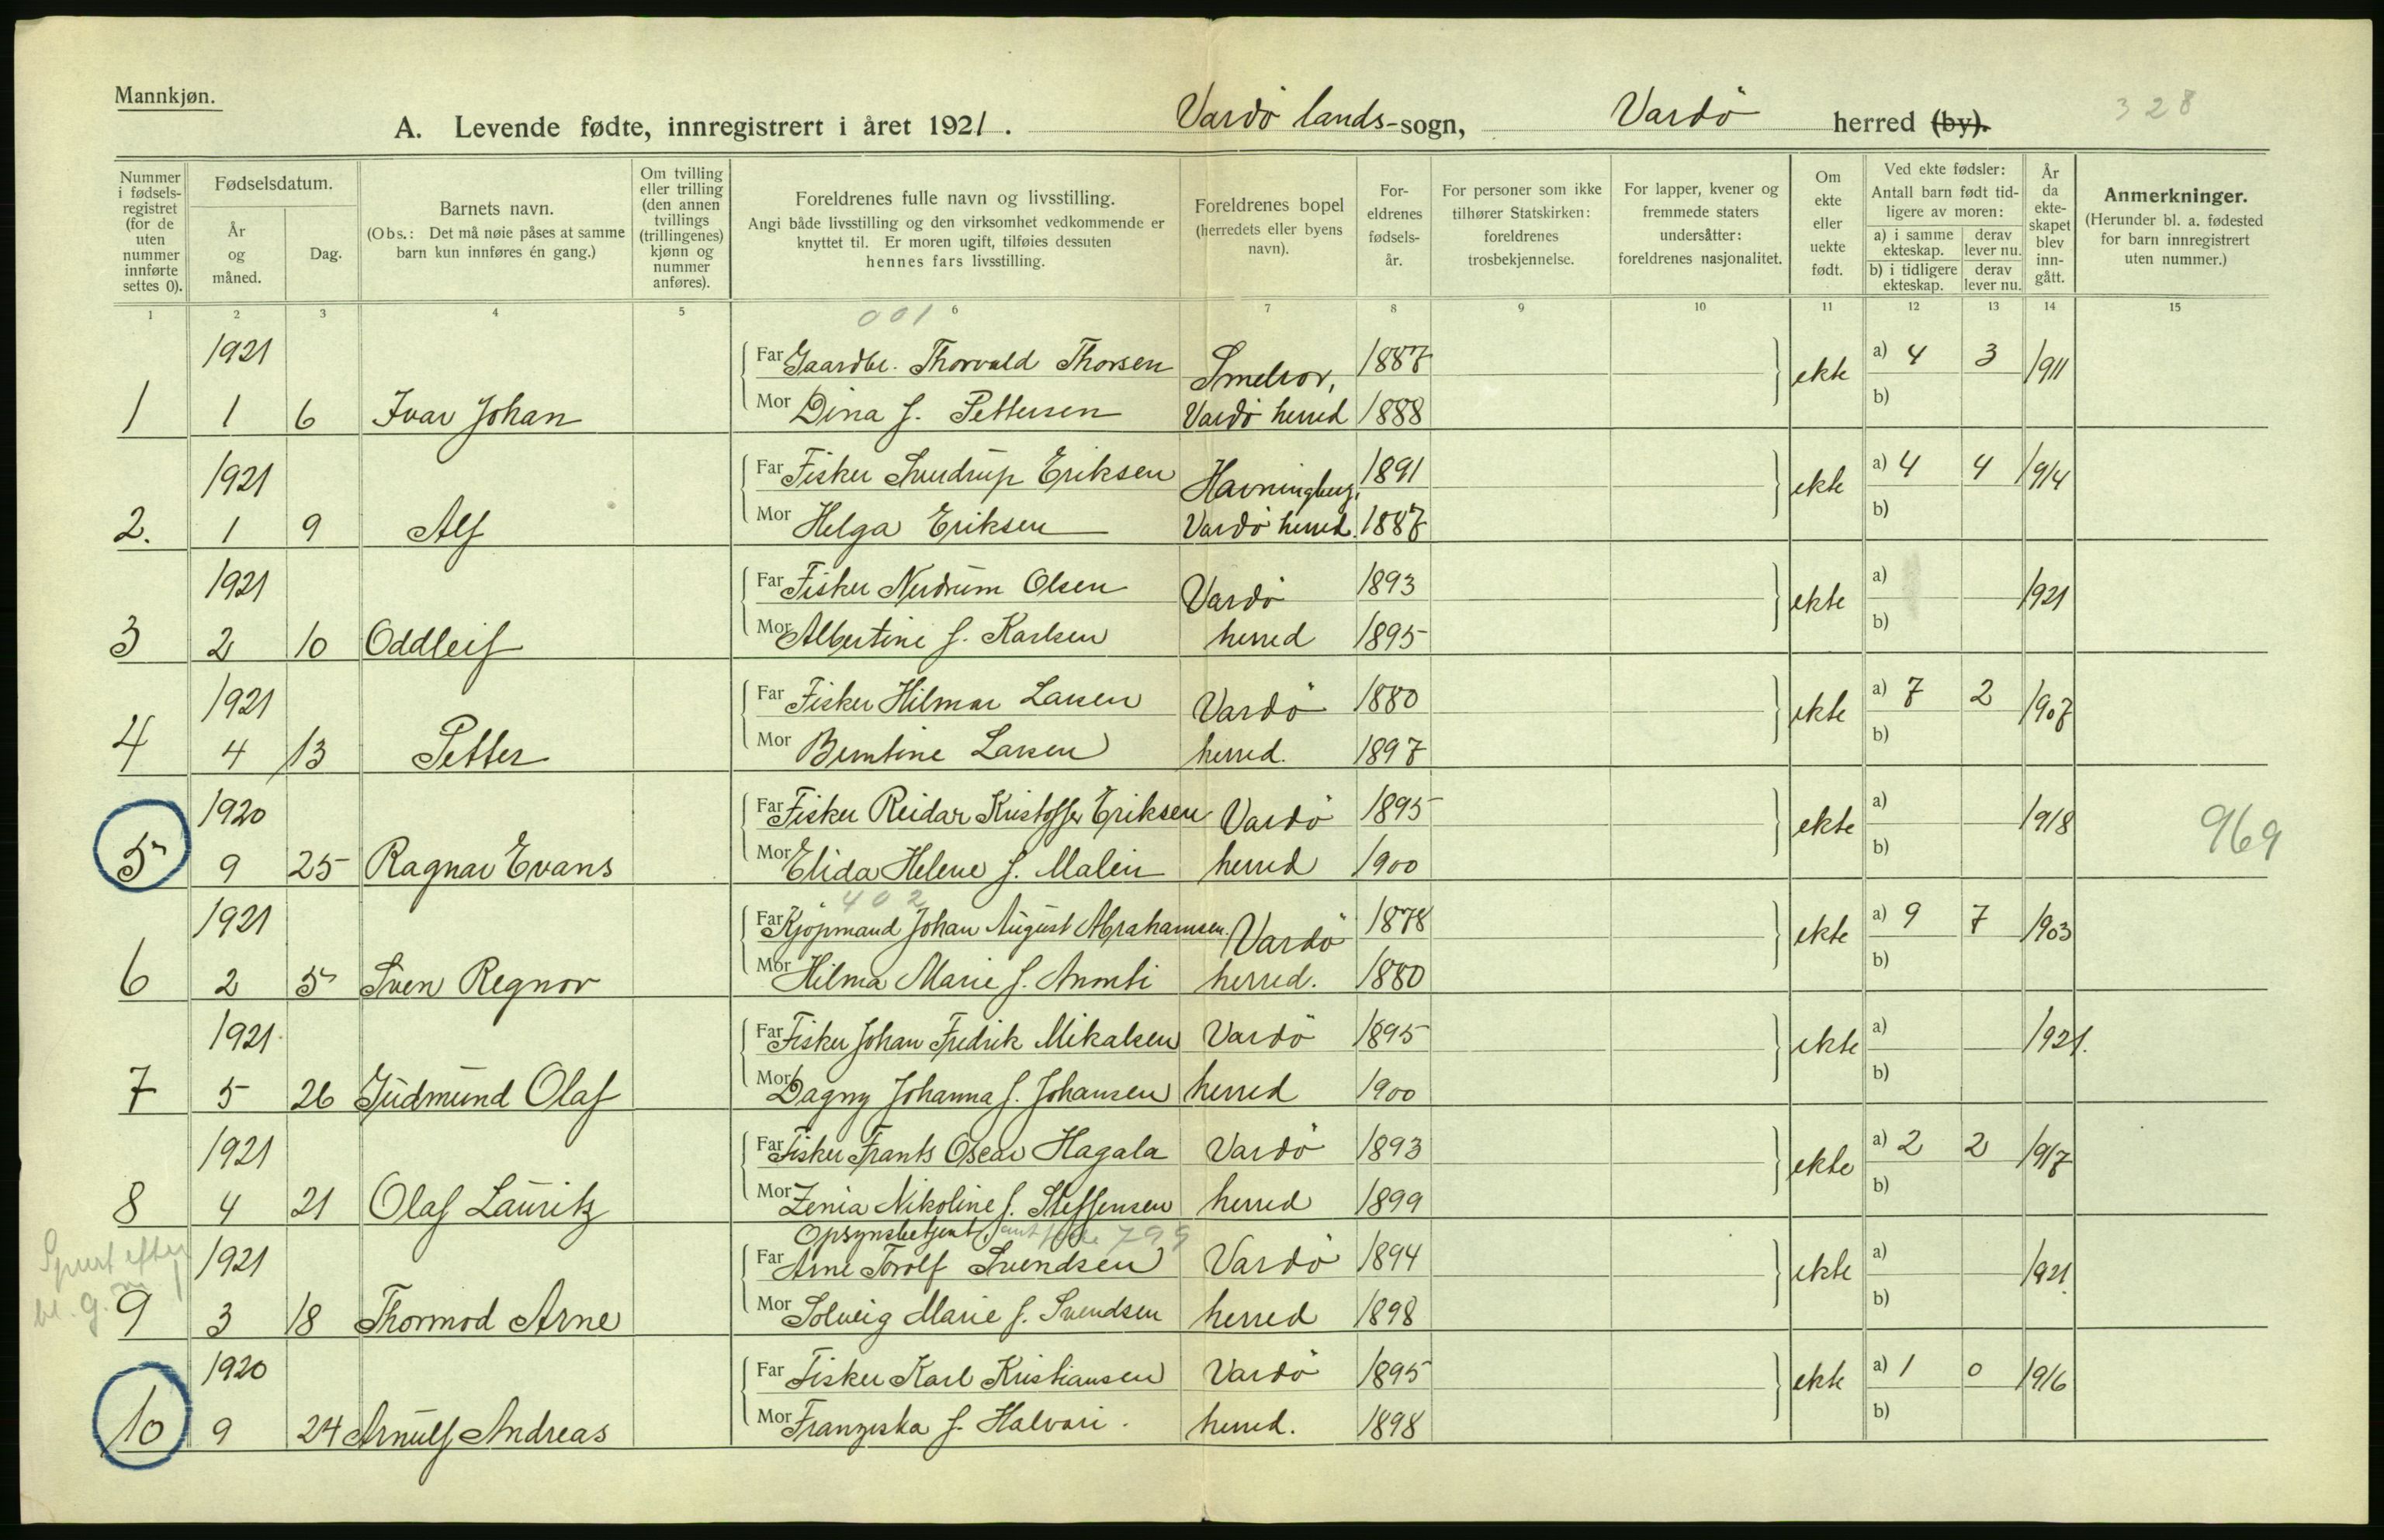 Mannkjøn.
A. Levende fødte, innregistrert i året 1921. Vardö lands-sogn, Vardö herred (by). 328
Nummer i fødsels-registret (for de uten nummer innførte settes 0).
Fødselsdatum.
År og måned.
Dag.
Barnets navn.
(Obs.: Det må nøie påses at samme barn kun innføres én gang.)
Om tvilling eller trilling (den annen tvillings (trillingenes) kjønn og nummer anføres).
Foreldrenes fulle navn og livsstilling.
Angi både livsstilling og den virksomhet vedkommende er knyttet til. Er moren ugift, tilføies dessuten hennes fars livsstilling.
Foreldrenes bopel (herredets eller byens navn).
For-eldrenes fødsels-år.
For personer som ikke tilhører Statskirken: foreldrenes trosbekjennelse.
For lapper, kvener og fremmede staters undersåtter: foreldrenes nasjonalitet.
Om ekte eller uekte født.
Ved ekte fødsler:
Antall barn født tid-ligere av moren:
a) i samme ekteskap. derav lever nu.
b) i tidligere ekteskap. derav lever nu.
År da ekte-skapet blev inn-gått.
Anmerkninger.
(Herunder bl. a. fødested for barn innregistrert uten nummer.)
1 2 3 4 5 6 7 8 9 10 11 12 13 14 15
001
1921 Far Gaardbr. Thorvald Thorsen Smelror, 1887 ekte a) 4 3 1911
1 1 6 Ivar Johan Mor Dina f. Pettersen Vardö herred 1888 b)
1921 Far Fisker Sverdrup Eriksen Havningberg, 1891 ekte a) 4 4 1914
2. 1 9 Alf Mor Helga Eriksen Vardö herred. 1887 b)
1921 Far Fisker Nerdrum Olsen Vardö 1893 ekte a) 1921
3 2 10 Oddleif Mor Albertine f. Karlsen herred 1895 b)
1921 Far Fisker Hilmar Larsen Vardö 1880 ekte a) 7 2 1907
4 4 13 Petter Mor Berntine Larsen herred. 1897 b)
1920 Far Fisker Reidar Kristoffer Eriksen Vardö 1895 ekte a) 1918 969
5 9 25 Ragnar Evans Mor Elida Helene f. Malin herred 1900 b)
402
1921 Far Kjöpmand Johan August Abrahamsen. Vardö 1878 ekte a) 9 7 1903
6 2 5 Sven Regnor Mor Hilma Marie f. herred. 1880 b)
1921 Far Fisker Johan Fredrik Mikalsen Vardö 1895 ekte a) 1921.
7 5 26 Gudmund Olaf Mor Dagny Johanna f. Johansen herred 1900 b)
1921 Far Fisker Frants Oscar Hagala Vardö 1893 ekte a) 2 2 1917
8 4 21 Olaf Lauritz Mor Zenia Nikoline f. Steffensen herred 1899 b)
Opsynsbetjent 799
Spurt efter
1921 Far Arne Torolf Svendsen Vardö 1894 ekte a) 1921.
9 3 18 Thormod Arne Mor Solveig Marie f. Svendsen herred 1898 b)
1920 Far Fisker Karl Kristiansen Vardö 1895 ekte a) 1 0 1916
10 9 24 Arnulf Andreas Mor Franziska f. Halvari. herred. 1898 b)